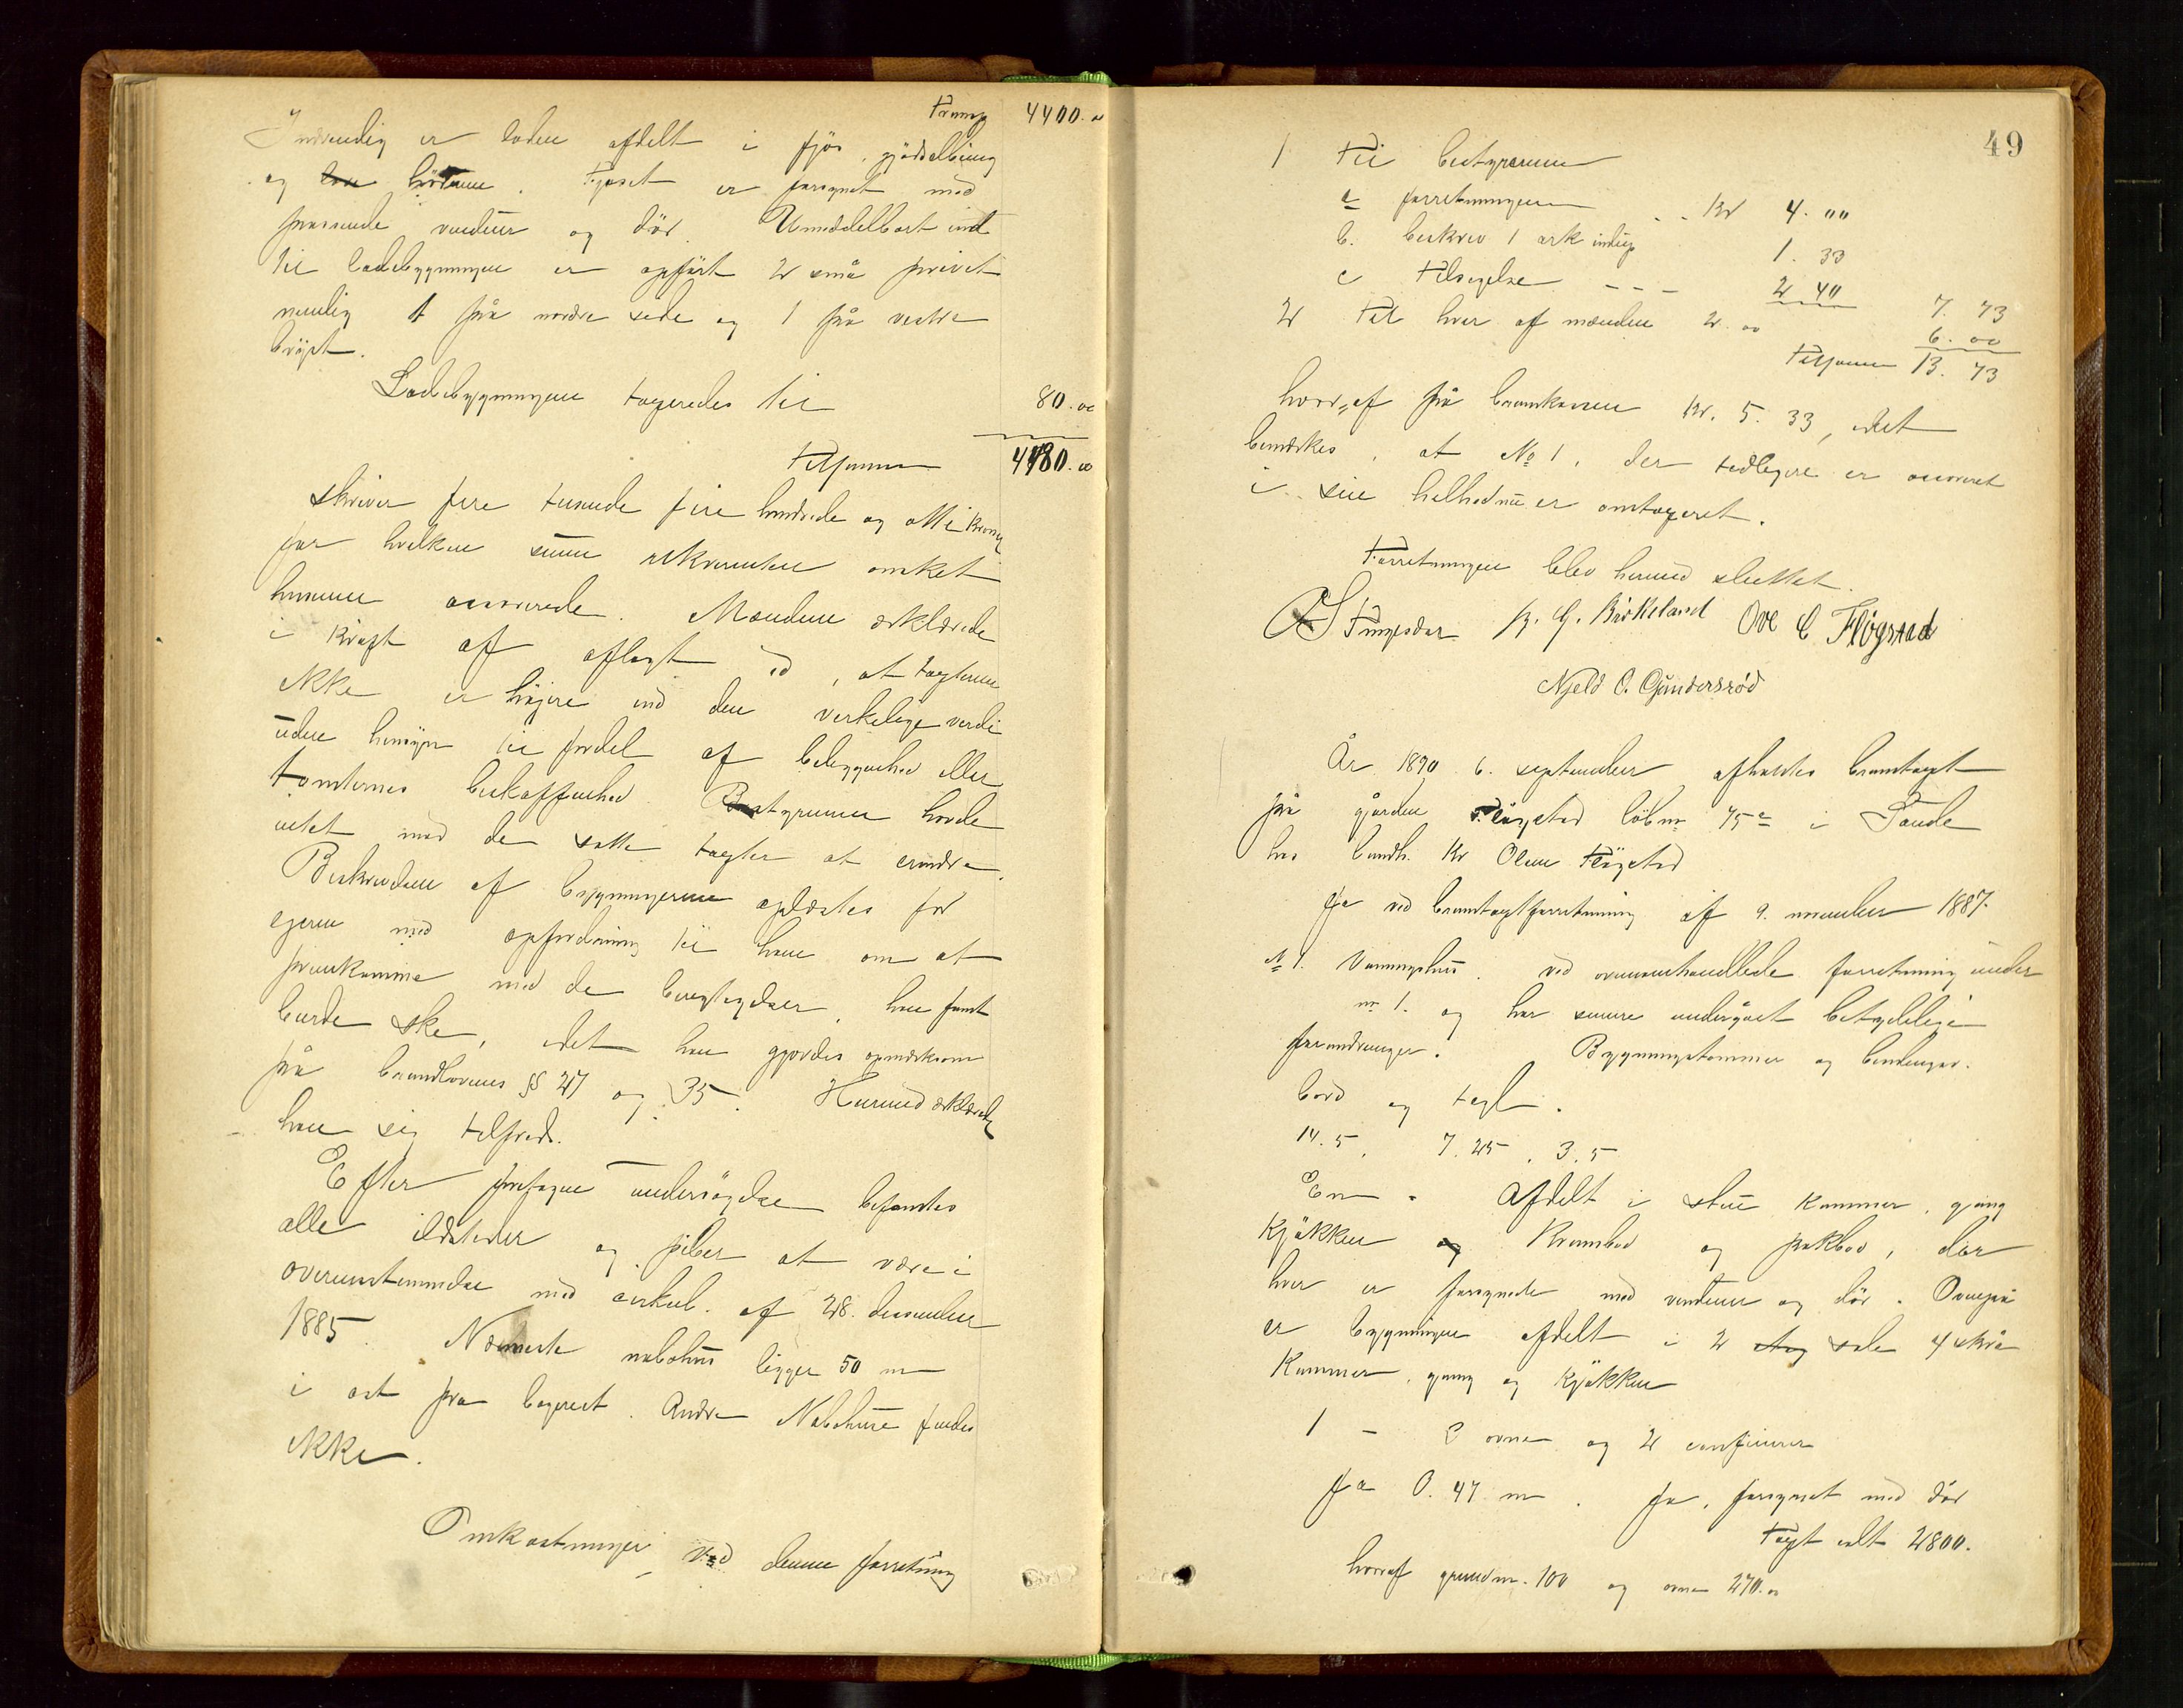 Transp 4400.00
Indvendig er laden afdelt i fjøs, gjødselbing
og høtøme. Fjøset er forsynet med
passende vinduer og dør. Umiddelbart ind
til ladebygningen er opført 2 små privet
nemlig 1 på nordre side og 1 på vestre
bryst.
Ladebygningen taxeredes til 80.00
Tilsammen 4480.00
skriver fire tusinde fire hundrede og otti kroner
for hvilken sum rekvirenten ønsket
husene assurerede. Mændene erklærede
i kraft af aflagt ed, at taxterne
ikke er høiere end den virkelige verdi
uden hensyn til fordel af beliggenhed eller
tomternes beskaffenhed. Bestyreren havde
intet mod de satte taxter at erindre.
Beskrivelsen af bygningerne oplæstes for
eieren med opfordring til ham om at
fremkomme med de berigtigelser, han fandt
burde ske, idet han gjordes opmærksom
på brandlovens §§ 27 og 35. Hermed erklærede
han sig tilfreds.
Efter foretagne undersøgelse befandtes
alle ildsteder og piber at være i
overensstemmelse med cirkul. af 28. desember
1885. Nærmeste nabohus ligger 50 m
i øst fra bygerest. Andre Nabohuse findes
ikke.
Omkostninger ved denne forretning
49
1 Til bestyreren
a forretningen - - Kr 4.00
b. beskrev 1 ark indtil 1.33
c Tilsigelse - - - 2 40 7.73
2 Til hver af mændene 2.00 6.00
Tilsammen 13.73
hvoraf på brandkassen Kr. 5.33, idet
bemærkes, at No 1, der tidligere er assureret
i sin helhed nu er omtaxeret.
Forretningen blev hermed sluttet.
Tingsdar B. G. Birkeland Ove C Fløgstad
Njeld O. Gundersrød
År 1890 6. september afholdtes brandtaxt
på gården Fløgstad løbnr 75a i Sande
hos landh. Kr Olsen Fløgstad
Ja ved brandtaxtforretning af 9. november 1887.
No 1. Våningshus. Ved ovennævnte forretning under
nr 1. og har senere undergået betydelige
forandringer. Bygningstømmer og bindinger.
bord og tegl.
14.5, 7.25, 3.5
En. Afdelt i stue kammer, gang
Kjøkken Krambod og pakbod, der
hver er forsynede med vinduer og dør. Ovenpå
er bygningen afdelt i 2 sale 4 skrå
Kammer, gang og Kjøkken
1 - 3 ovne og 2 comfiurer
Ja 0.47 m. Ja, forsynet med dør
Taxt ialt 2800.
hvoraf grundm. 100 og ovne 270.00